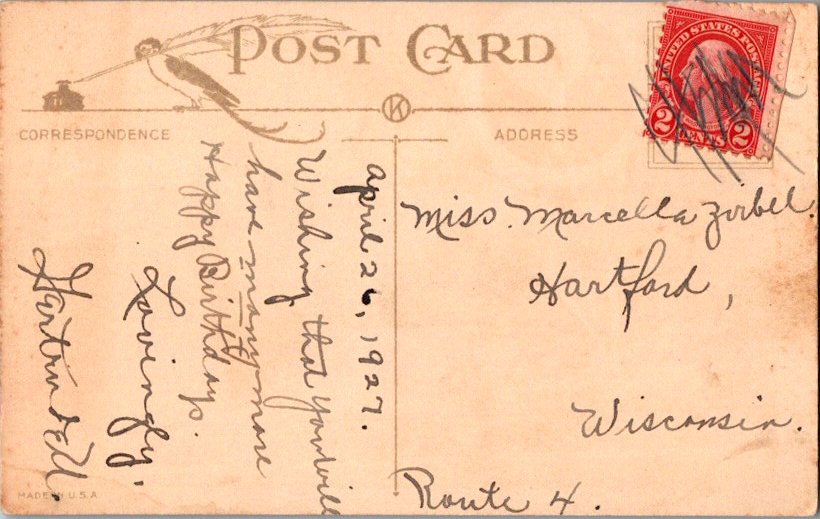 POST CARD
CORRESPONDENCE
ADDRESS
UNITED STATES POSTAGE
2 CENTS 2
April 26, 1927.
Wishing that you will
have many more
Happy Birthdays.
Lovingly,
Miss. Marcella Zorbel.
Hartford,
Wisconsin.
Route 4.
MADE IN U.S.A